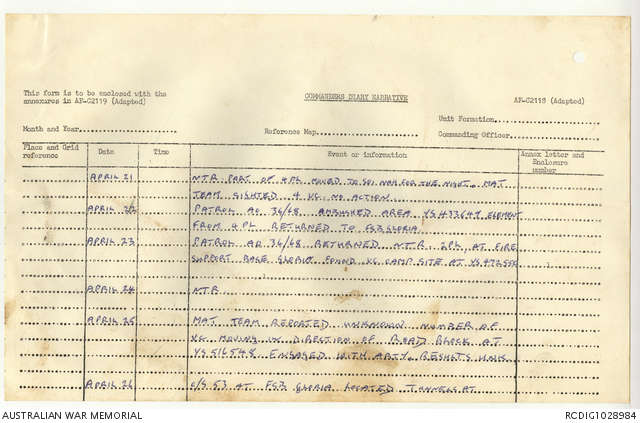 This form is to be enclosed with the
annexures in AF-C2119 (Adapted)
COMMANDERS DIARY NARRATIVE
AF-C2118 (Adapted)
Unit Formation
Month and Year
Reference Map
Commanding Officer
Place and Grid reference Date Time Event or information Annex letter and Enclosure number
APRIL 21 NTR PART OF 4PL MOVED TO FOR THE NIGHT. MAT
TEAM SIGHTED 4 VC. NO ACTION.
APRIL 22 PATROL AO 36/68 AMBUSHED AREA YS433649 ELEMENT
FROM 4 PL RETURNED TO FSB GLORIA
APRIL 23 PATROL AO 36/68 RETURNED N.T.R. 2PL AT FIRE
SUPPORT BASE GLORIA FOUND VC CAMP SITE AT
APRIL 24 NTR
APRIL 25 MAT TEAM REPORTED UNKNOWN NUMBER OF
VC MOVING IN DIRECTION OF ROAD BLOCK AT
YS516548 ENGAGED WITH ARTY. RESULTS UNK.
APRIL 26 C/S 53 AT FSB GLORIA LOCATED TUNNELS AT
AUSTRALIAN WAR MEMORIAL
RCDIG1028984